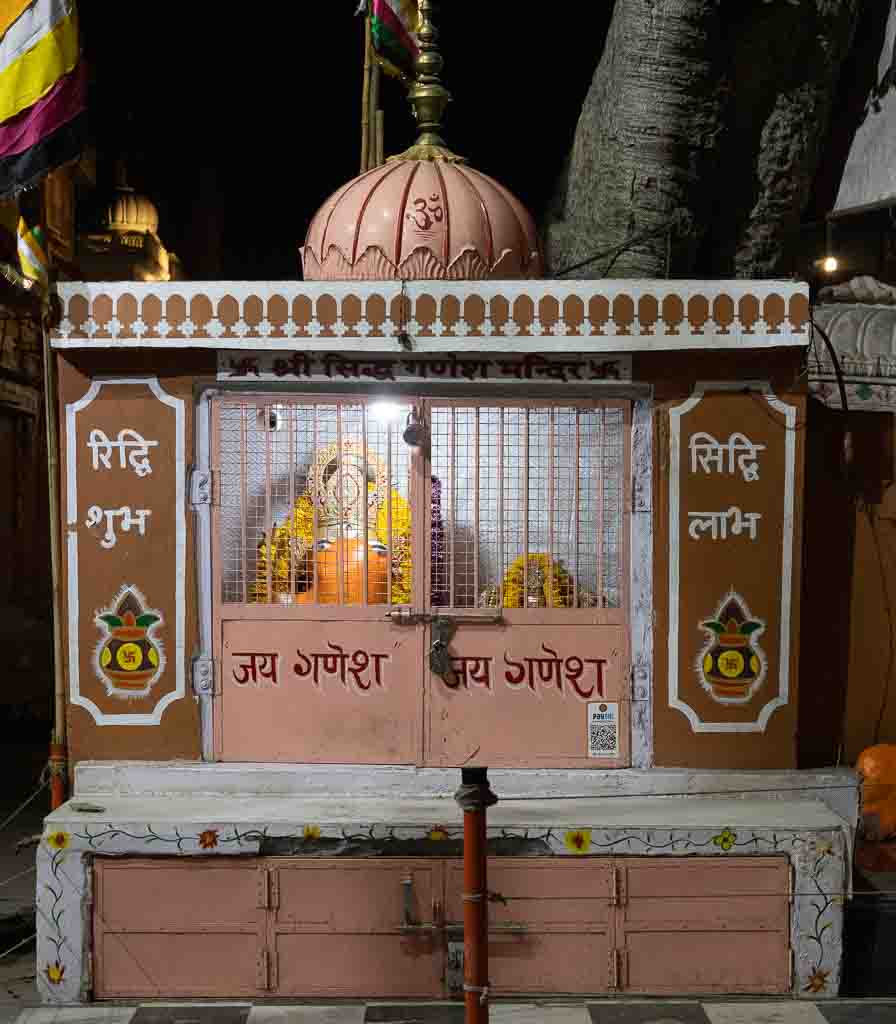 ॐ
卐 श्री सिद्ध गणेश मन्दिर 卐
रिद्धि
शुभ
सिद्धि
लाभ
"जय गणेश"
"जय गणेश"
Paytm